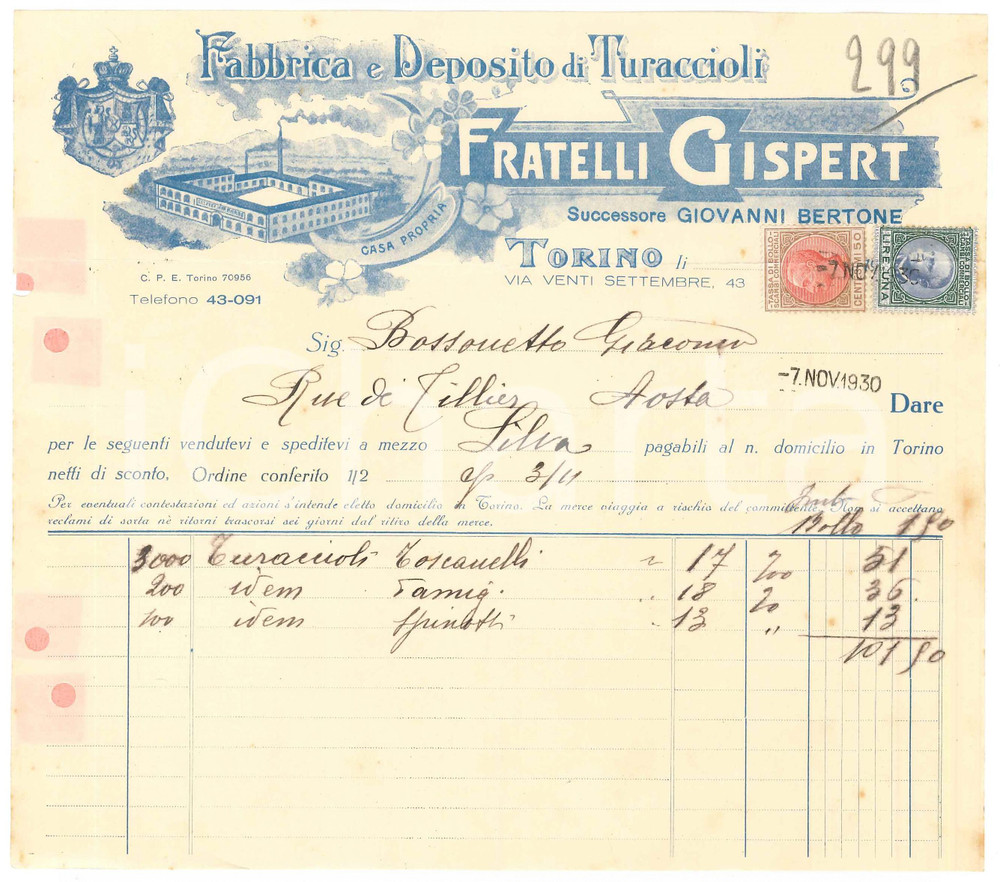 299
Fabbrica e Deposito di Turaccioli
FRATELLI GISPERT
Successore GIOVANNI BERTONE
CASA PROPRIA
TORINO li
VIA VENTI SETTEMBRE, 43
C. P. E. Torino 70956
Telefono 43-091
TASSA DI BOLLO SCAMBI COMMERCIALI CENTESIMI 50
TASSA DI BOLLO SCAMBI COMMERCIALI LIRE UNA
-7 NOV 1930
Sig. Bossonetto Giacomo
-7.NOV.1930
Rue de Tillier Aosta Dare
per le seguenti vendutevi e speditevi a mezzo Silva pagabili al n. domicilio in Torino
netti di sconto. Ordine conferito 1/2 3/11
Per eventuali contestazioni ed azioni s'intende eletto domicilio in Torino. La merce viaggia a rischio del committente. Non si accettano
reclami di sorta nè ritorni trascorsi sei giorni dal ritiro della merce.
Bollo 1 50
3000 Turaccioli Toscanelli " 17 51
200 idem Famig. " 18 36
100 idem Spinotti " 13 " 13
101 50